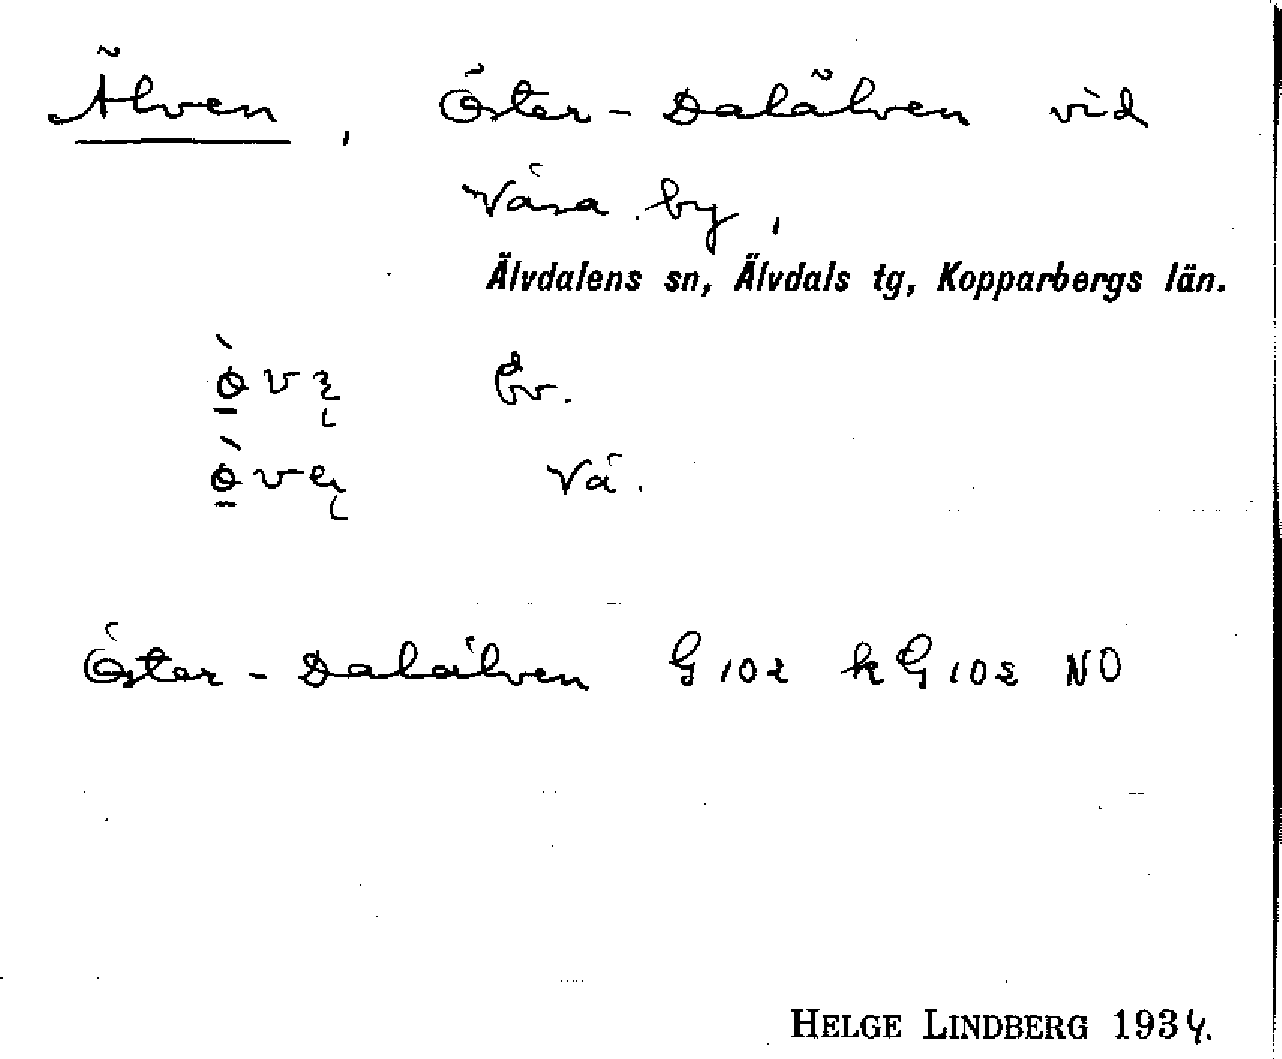 Älven, Öster-Dalälven vid
Väsa by,
Älvdalens sn, Älvdals tg, Kopparbergs län.
Vä.
Öster-Dalälven G 102 kG 102 NO
HELGE LINDBERG 1934.